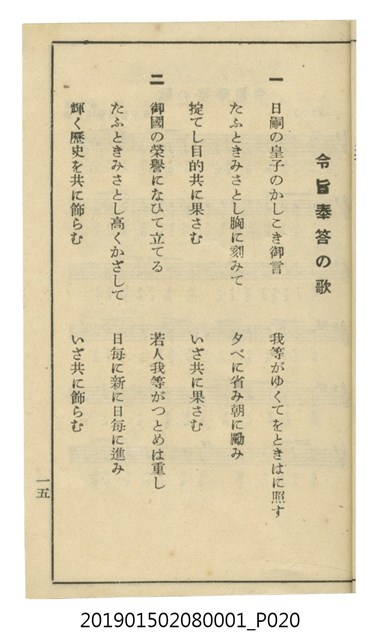 令旨奉答の歌
一
日嗣の皇子のかしこき御言
我等がゆくてをときはに照す
たふときみさとし胸に刻みて
夕べに省み朝に勵み
掟てし目的共に果さむ
いざ共に果さむ
二
御國の榮譽になひて立てる
若人我等がつとめは重し
たふときみさとし高くかざして
日每に新に日每に進み
輝く歷史を共に飾らむ
いざ共に飾らむ
一五
201901502080001_P020